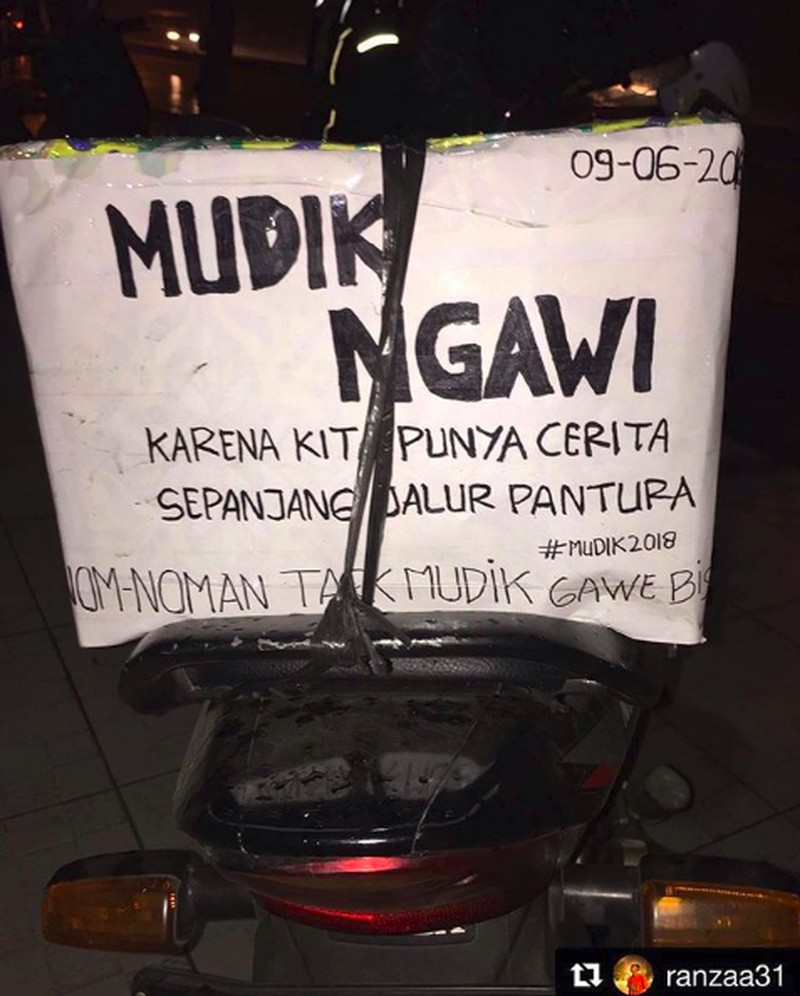 09-06-20
MUDIK
NGAWI
KARENA KITA PUNYA CERITA
SEPANJANG JALUR PANTURA
#MUDIK2018
NOM-NOMAN TAEK MUDIK GAWE BIS
ranzaa31